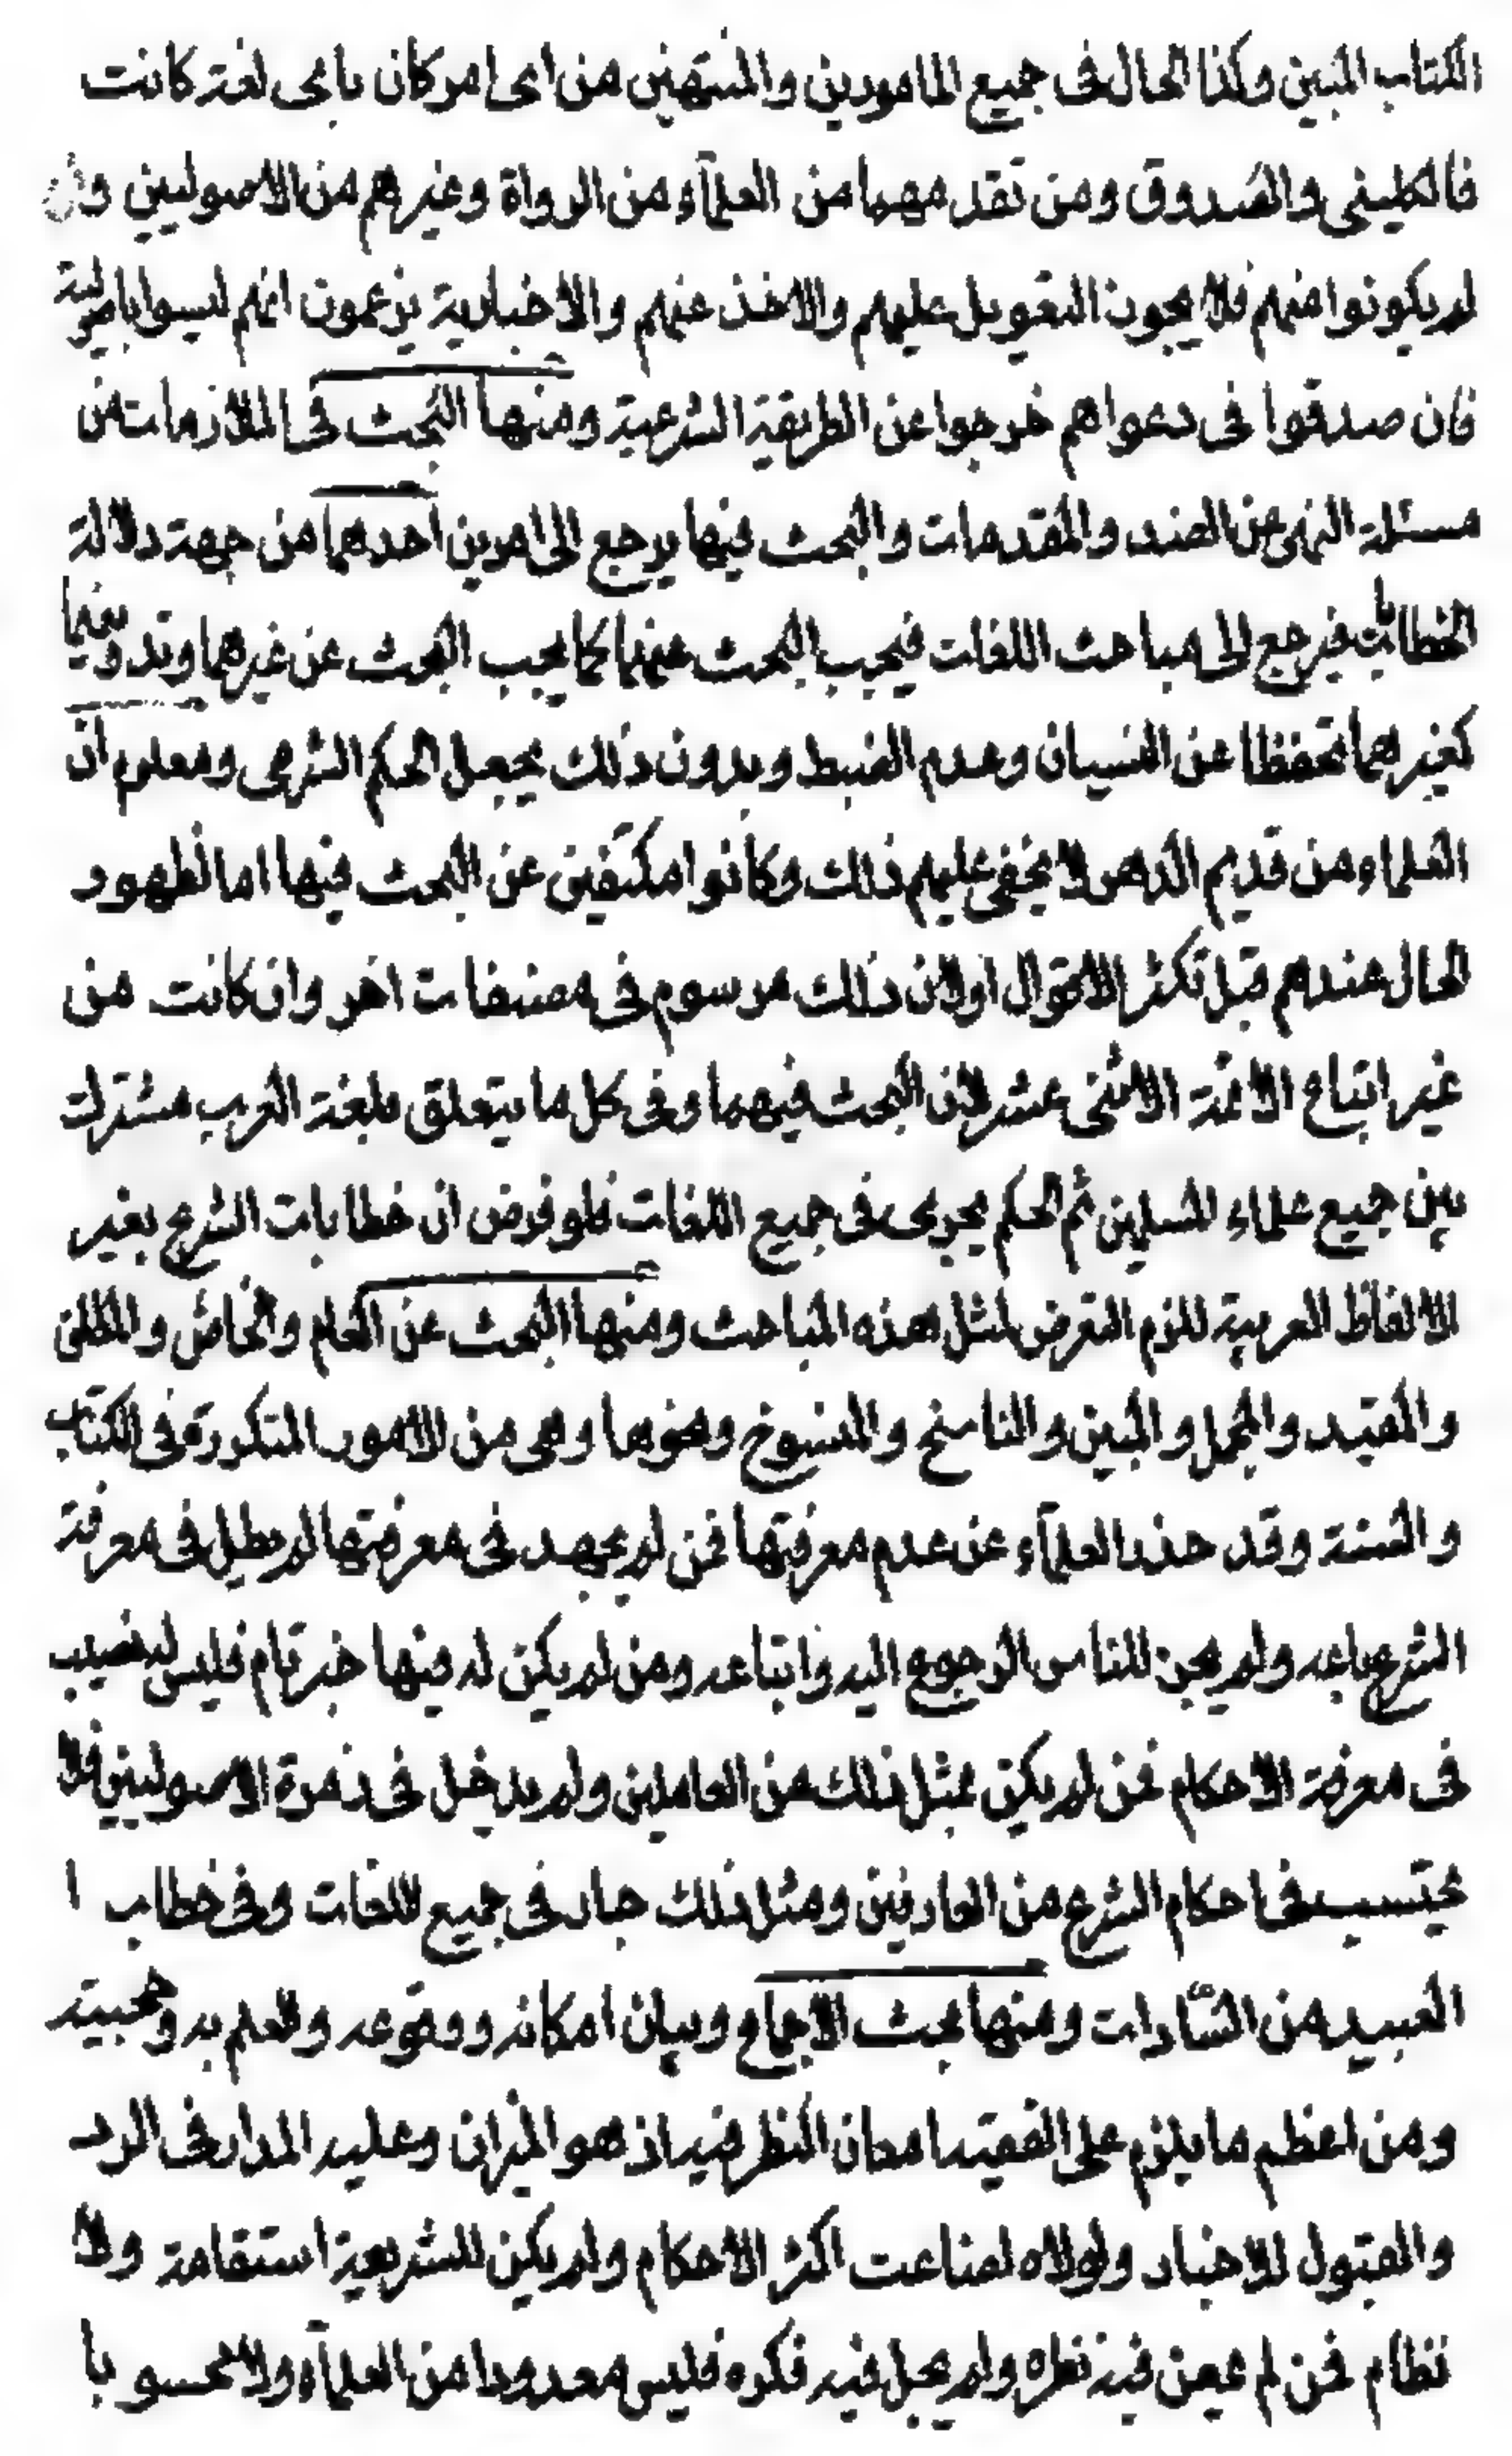 الكتاب المبين وكذا الحال في جميع المامورين والمنتهين من اى امر كان باى لغة كانت
فالكلينى والصدوق ومن تقدمهما من العلمآء من الرواة وغيرهم من الاصوليين وان
لم يكونوا منهم فلا يجوز التعويل عليهم والاخذ عنهم والاخبارية يزعمون انهم ليسوا باصولية
فان صدقوا فى دعواهم خرجوا عن الطريقة الشرعية ومنها البحث في الملازمات من
مسئلة النهى عن الضد والمقدمات والبحث فيها يرجع الى امرين احدهما من جهة دلالة
الخطابات فيرجع الى مباحث اللغات فيجب البحث عنهما كما يجب البحث عن غيرهما وتدوينهما
كغيرهما تحفظا عن النسيان وعدم الضبط وبدون ذلك يجهل الحكم الشرعى ومعلوم ان
العلماء من قديم الدهر لا يخفى عليهم ذلك وكانوا مكتفين عن البحث فيها اما لظهور
الحال عندهم قبل تكثر الاقوال او لان ذلك مرسوم فى مصنفات اخر وان كانت من
غير اتباع الائمة الاثنى عشر لان البحث فيهما وفى كل ما يتعلق بلغة العرب مشترك
بين جميع علماء المسلمين ثم الحكم يجرى فى جميع اللغات فلو فرض ان خطابات الشرع بغير
الالفاظ العربية للزم التعرض لمثل هذه المباحث ومنها البحث عن العام والخاص والمطلق
والمقيد والمجمل والمبين والناسخ والمنسوخ ونحوها وهى من الامور المتكررة فى الكتاب
والسنة وقد حذر العلمآء عن عدم معرفتها فمن لم يجهد فى معرفتها لم يطل فى معرفة
الشرع باعه ولم يجز للناس الرجوع اليه واتباعه ومن لم يكن له فيها خبر تام فليس له نصيب
فى معرفة الاحكام فمن لم يكن بمثل ذلك من العاملين ولم يدخل فى زمرة الاصوليين فلا
يحتسب فى احكام الشرع من العارفين ومثل ذلك جار فى جميع اللغات وفى خطاب ا
العبيد من السّادات ومنها بحث الاجماع وبيان امكانه ووقوعه والعلم به وحجيته
ومن اعظم ما يلزم على الفقيه امعان النظر فيه اذ هو الميزان وعليه المدار فى الرد
والقبول للاخبار ولولاه لضاعت اكثر الاحكام ولم يكن للشريعة استقامة ولا
نظام فمن لم يمعن فيه نظره ولم يجل فيه فكره فليس معدودا من العلمآء ولا محسوبا